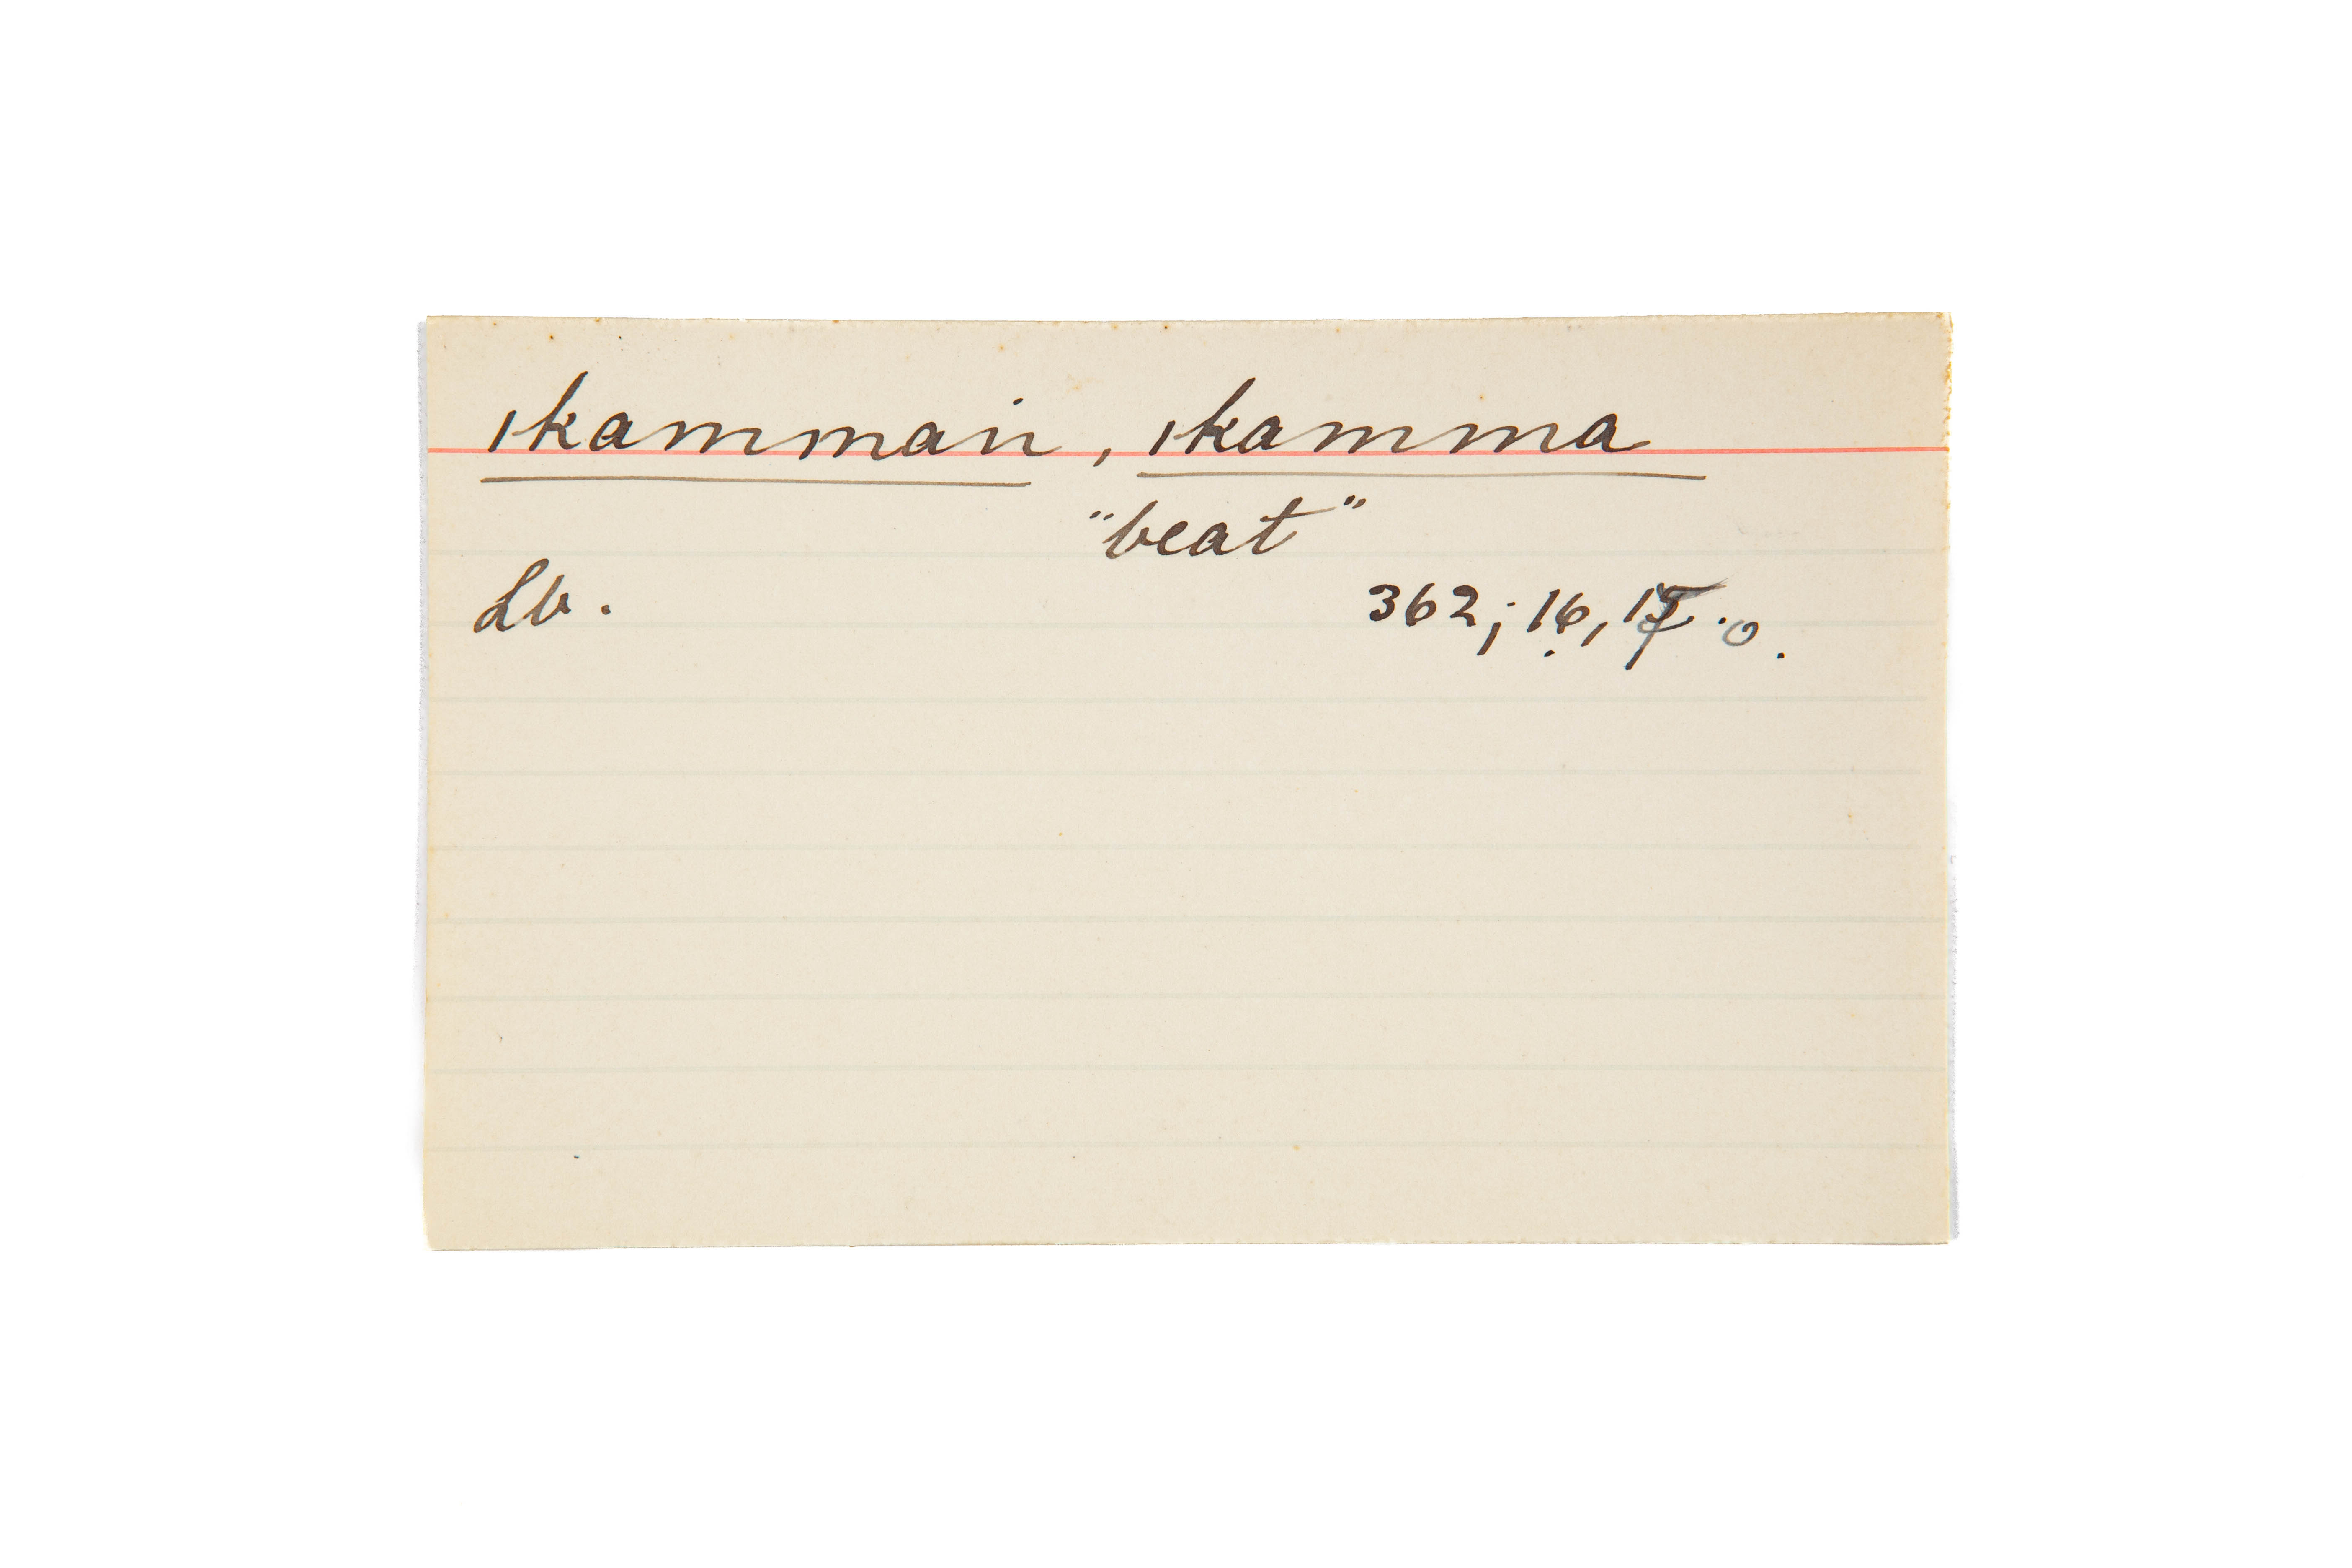 ǀkammain, ǀkamma
"beat"
Lb. 362; 16, 17. o.